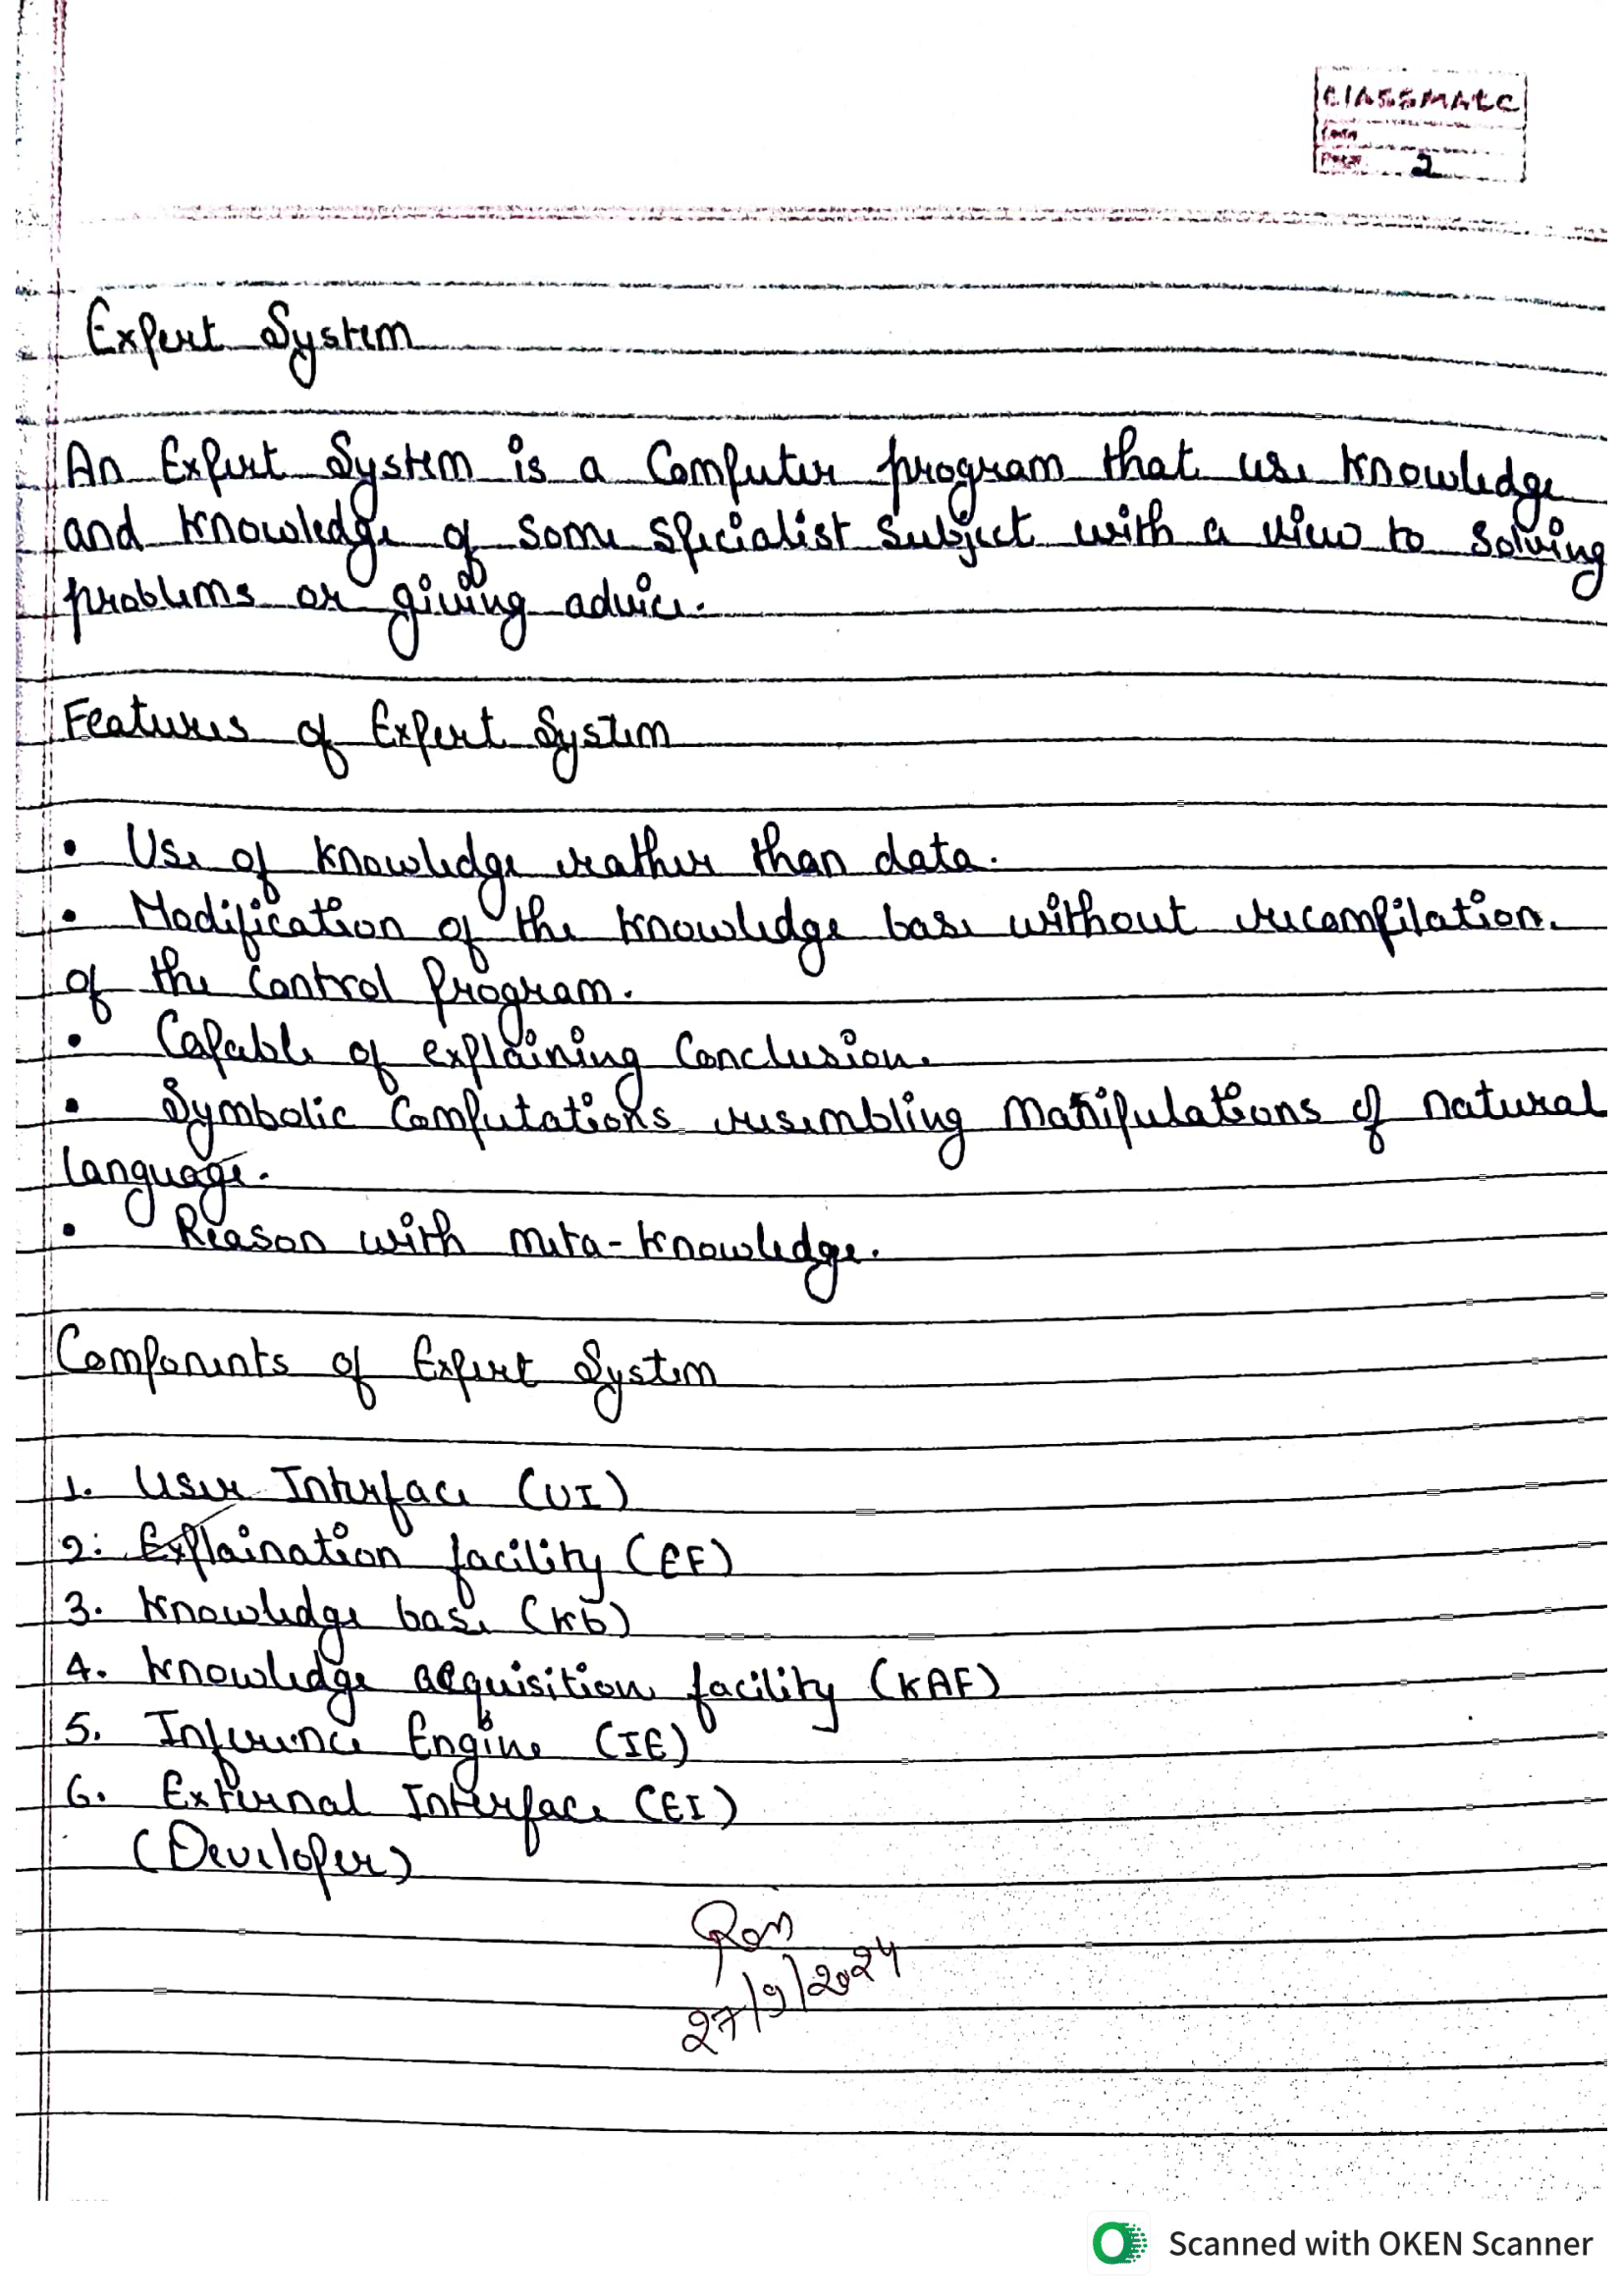 classmate
Date
Page 2
Expert System
An Expert System is a Computer program that use knowledge
and knowledge of some specialist subject with a view to solving
problems or giving advice.
Features of Expert System
• Use of knowledge rather than data.
• Modification of the knowledge base without recompilation.
of the control program.
• Capable of explaining conclusion.
• Symbolic Computations resembling Manipulations of natural
language.
• Reason with meta-knowledge.
Components of Expert System
1. User Interface (UI)
2. Explaination facility (EF)
3. Knowledge base (Kb)
4. Knowledge acquisition facility (KAF)
5. Inference Engine (IE)
6. External Interface (EI)
(Developer)
27/9/2024
Scanned with OKEN Scanner